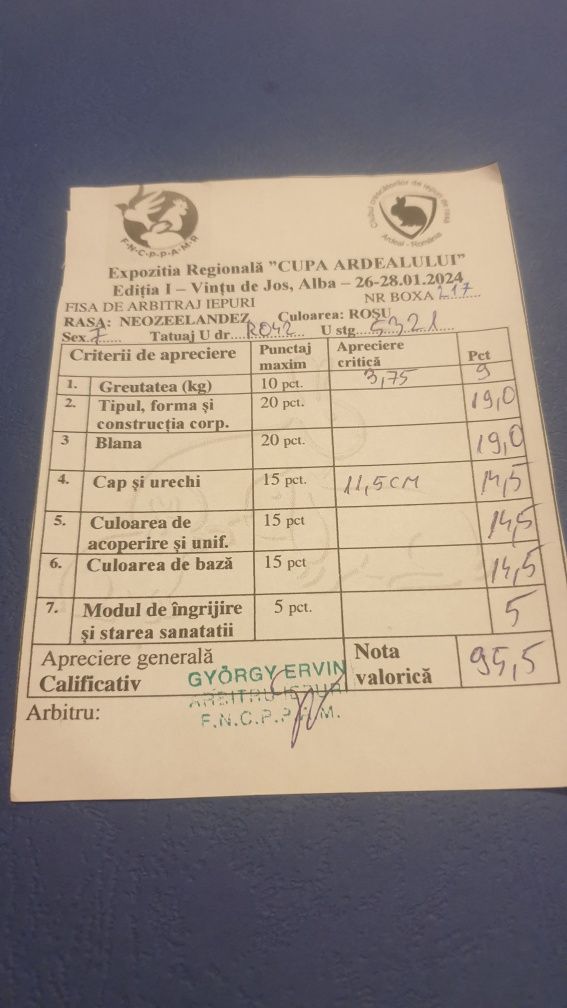 F-N-C-P-P-A-M-R
Clubul crescătorilor de iepuri de rasă
Ardeal - România
Expozitia Regională "CUPA ARDEALULUI"
Ediția I – Vințu de Jos, Alba – 26-28.01.2024
FISA DE ARBITRAJ IEPURI NR BOXA 217
RASA: NEOZEELANDEZ Culoarea: ROȘU
Sex..F...... Tatuaj U dr....RO42... U stg....5321....
Criterii de apreciere Punctaj maxim Apreciere critică Pct
1. Greutatea (kg) 10 pct. 3,75 9
2. Tipul, forma și construcția corp. 20 pct. 19,0
3 Blana 20 pct. 19,0
4. Cap și urechi 15 pct. 11,5 CM 14,5
5. Culoarea de acoperire și unif. 15 pct 14,5
6. Culoarea de bază 15 pct 14,5
7. Modul de îngrijire și starea sanatatii 5 pct. 5
Apreciere generală
Calificativ
Nota valorică 95,5
Arbitru:
GYÖRGY ERVIN
ARBITRU IEPURI
F.N.C.P.P.A.M.